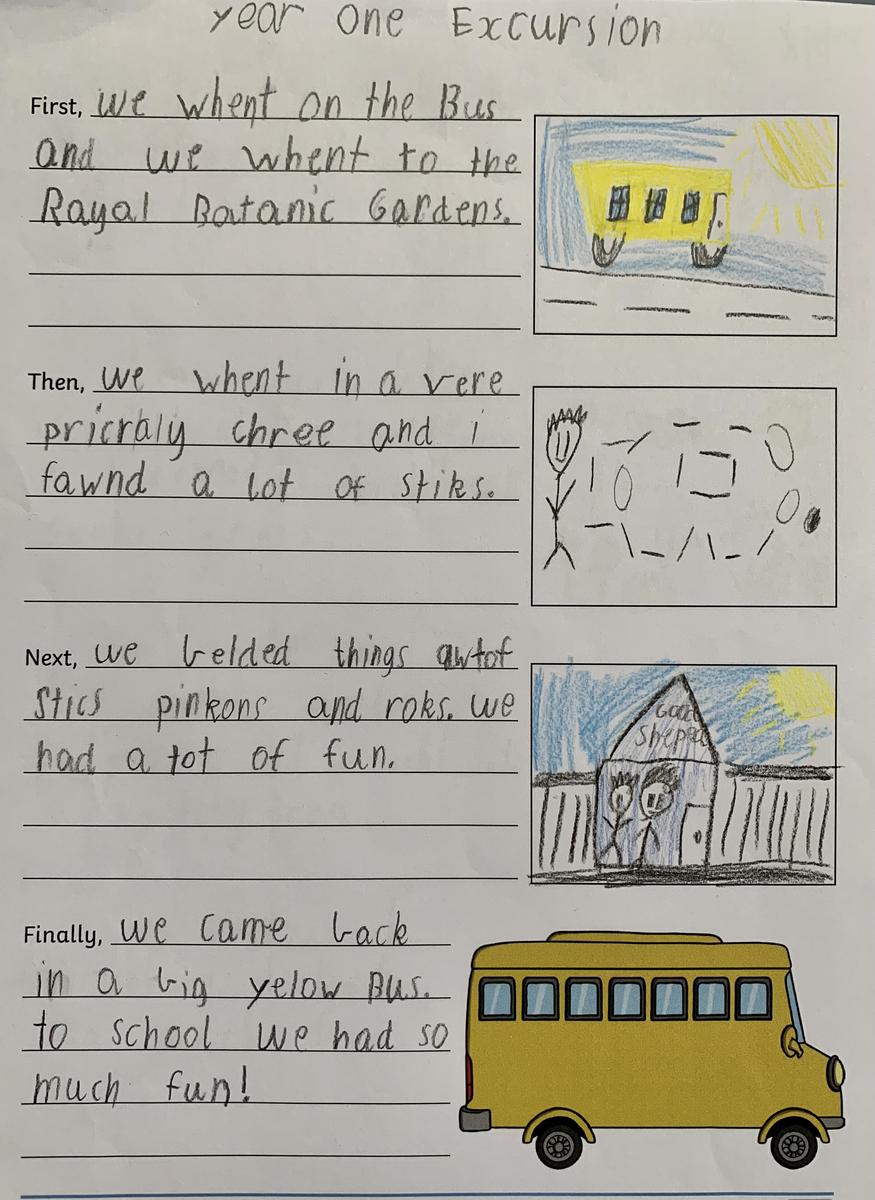 year one Excursion
First, we whent on the Bus
and we whent to the
Rayal Batanic Gardens.
Then, we whent in a vere
pricraly chree and i
fawnd a lot of stiks.
Next, we belded things awtof
Stics pinkons and roks. we
had a lot of fun.
Good
Sheped
Finally, we came back
in a big yelow Bus.
to school we had so
much fun!